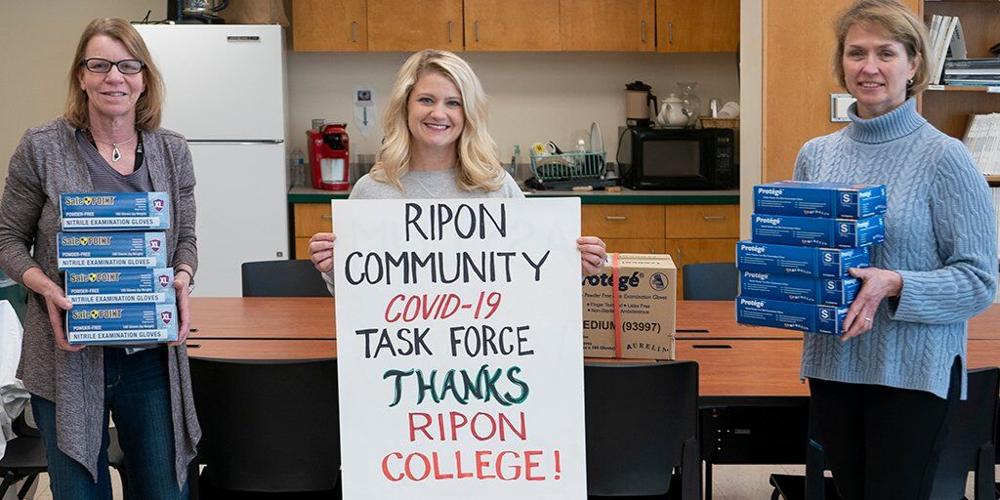 RIPON
COMMUNITY
COVID-19
TASK FORCE
THANKS
RIPON
COLLEGE!
Safe POINT
POWDER-FREE
XL
NITRILE EXAMINATION GLOVES
Safe POINT
POWDER-FREE
XL
NITRILE EXAMINATION GLOVES
Safe POINT
POWDER-FREE
XL
NITRILE EXAMINATION GLOVES
Safe POINT
POWDER-FREE
XL
NITRILE EXAMINATION GLOVES
rotégé
Powder Free Examination Gloves
EDIUM (93997)
AURELIN
Protégé
S
Protégé
S
Protégé
S
Protégé
S
Protégé
S